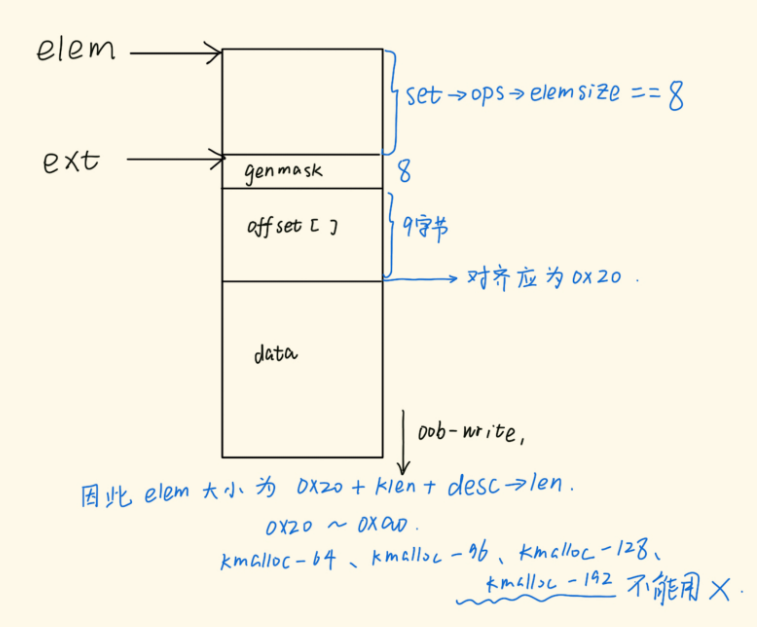 elem
set→ops→elemsize == 8
ext
genmask
8
offset[]
9字节
对齐应为0x20.
data
oob-write,
因此 elem 大小为 0x20 + klen + desc→len.
0x20 ~ 0xa0.
kmalloc-64、kmalloc-96、kmalloc-128、
kmalloc-192 不能用 ×.